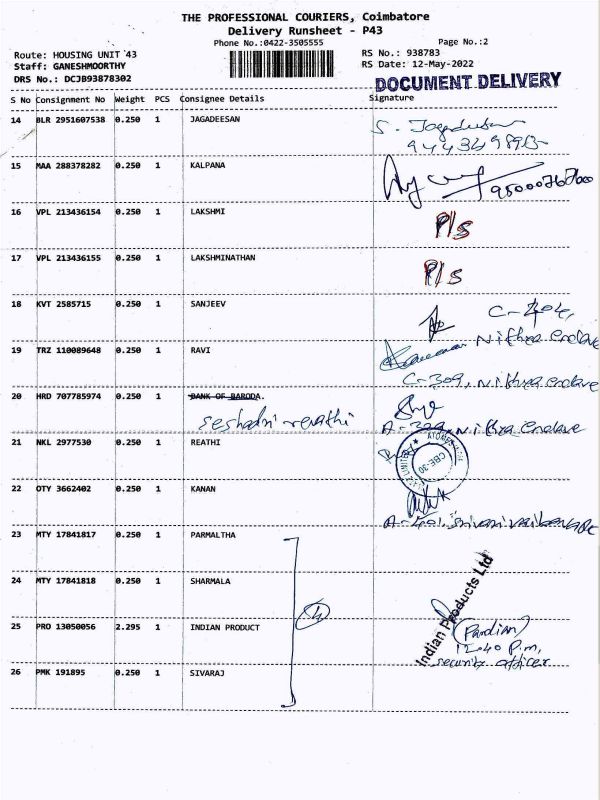 THE PROFESSIONAL COURIERS, Coimbatore
Delivery Runsheet - P43
Phone No.:0422-3505555
Page No.:2
Route: HOUSING UNIT 43
RS No.: 938783
Staff: GANESHMOORTHY
RS Date: 12-May-2022
DRS No.: DCJB93878302
DOCUMENT DELIVERY
S No Consignment No Weight PCS Consignee Details Signature
14 BLR 2951607538 0.250 1 JAGADEESAN
S. Jagadeesan
15 MAA 288378282 0.250 1 KALPANA
16 VPL 213436154 0.250 1 LAKSHMI P/s
17 VPL 213436155 0.250 1 LAKSHMINATHAN P/s
18 KVT 2585715 0.250 1 SANJEEV C-404,
Nithya enclave
19 TRZ 110089648 0.250 1 RAVI
C-309, Nithya enclave
20 HRD 707785974 0.250 1 BANK OF BARODA.
seshadri revathi A-302, Nithya enclave
21 NKL 2977530 0.250 1 REATHI
CBE-30
22 OTY 3662402 0.250 1 KANAN
A-401, Srivari
23 MTY 17841817 0.250 1 PARMALTHA
24 MTY 17841818 0.250 1 SHARMALA
4
Indian Products Ltd
25 PRO 13050056 2.295 1 INDIAN PRODUCT (Pandian)
12.40 P.m,
security officer
26 PMK 191895 0.250 1 SIVARAJ